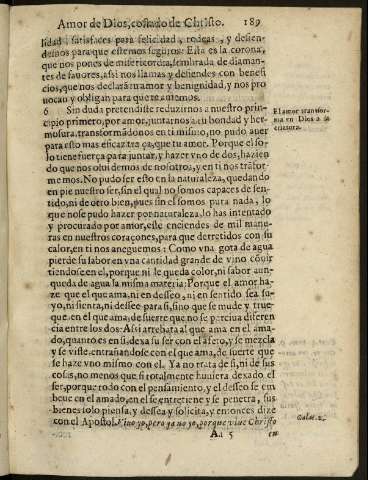 Amor de Dios, costado de Christo. 189
lidad i satisfaces para felicidad, rodeas, y defien-
desnos para que estemos seguros: Esta es la corona,
que nos pones de misericordia, sembrada de diaman-
tes de fauores, assi nos llamas y defiendes con benefi
cios, que nos declarã tu amor y benignidad, y nos pro
uocan y obligan para que te amemos.
6 Sin duda pretendiste reduzirnos a nuestro prin-
cipio primero, por amor, juntarnos a tu bondad y her-
mosura, transformãdonos en ti mismo, no pudo auer
para esto mas eficaz traça, que tu amor. Porque el so-
lo tiene fuerça para juntar, y hazer vno de dos, hazien
do que nos oluidemos de nosotros, y en ti nos trãsfor-
memos. No pudo ser esto en la naturaleza, quedando
en pie nuestro ser, sin el qual no somos capaces de sen-
tido, ni de otro bien, pues sin el somos pura nada, lo
que no se pudo hazer por naturaleza, lo has intentado
y procurado por amor, este enciendes de mil mane-
ras en nuestros coraçones, para que derretidos con su
calor, en ti nos aneguemos: Como vna gota de agua
pierde su sabor en vna cantidad grande de vino cõuir
tiendose en el, porque ni le queda color, ni sabor aun-
que da de agua la misma materia: Porque el amor ha-
ze que el que ama, ni en desseo, ni en sentido sea su-
yo, ni sienta, ni dessee para si, sino que se mude y true-
que en el que ama, de suerte que no se perciua diferen
cia entre los dos: Assi arrebata al que ama en el ama-
do, quanto es en si, dexa su ser con el afeto, y se mezcla
y se viste, entrañandose con el que ama, de suerte que
se haze vno mismo con el. Ya no trata de si, ni de sus
cosas, no menos que si totalmente huuiera dexado el
ser, porque todo con el pensamiento, y el desseo se em
beue en el amado, en el se entretiene y se penetra, sus
bienes solo piensa, y dessea y solicita, y entonces dize
con el Apostol. Viuo yo, pero ya no yo, porque viue Christo
Aa 5 en
El amor transfor-
ma en Dios a la
criatura.
Galat. 2.